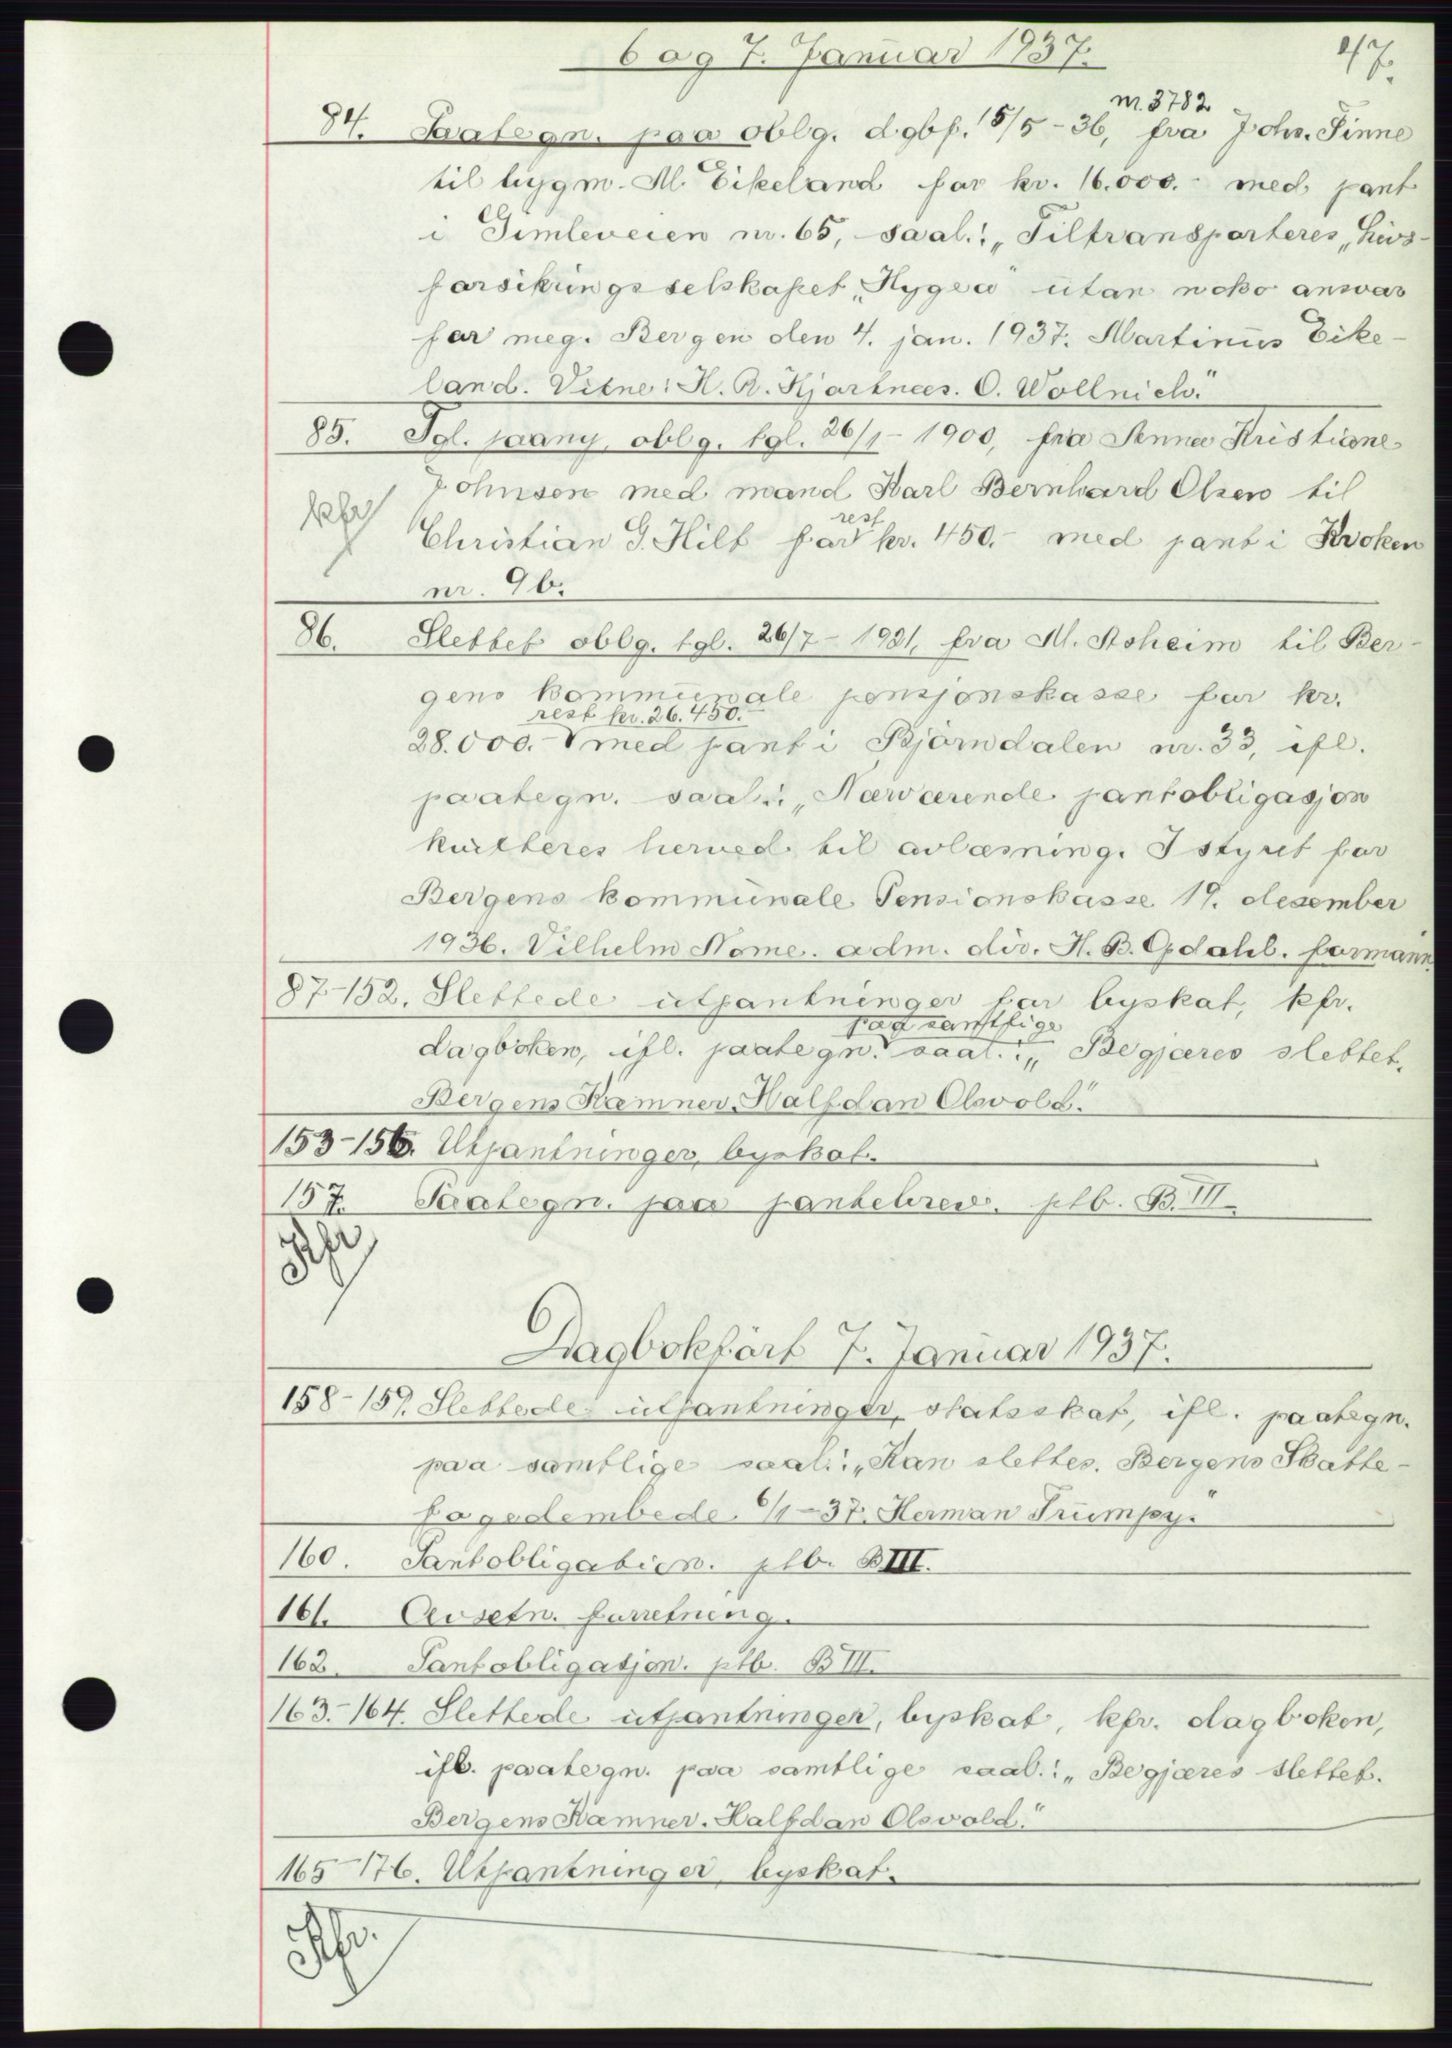 6 og 7. Januar 1937.
47.
nr. 3782
84. Paategn. paa oblg. dgbf. 15/5-36, fra Johs. Finne
til bygm. M. Eikeland for kr. 16.000.- med pant
i Gimleveien nr. 65, saal.: „Tiltransporteres „Livs-
forsikringsselskapet „Hygea" utan noko answar
for meg. Bergen den 4. jan. 1937. Martinus Eike-
land. Vitne: H. R. Kjartnes. O. Wollnich."
85. Tgl. paany oblg. tgl. 26/1-1900, fra Anna Kristiane
Johnson med mand Karl Bernhard Olsen til
kfr
rest
Christian G. Hilt for kr. 450.- med pant i Kroken
nr. 9b.
86. Slettet oblg. tgl. 26/7-1921, fra M. Asheim til Ber-
gens kommunale pensjonskasse for kr.
rest kr. 26.450.-
28.000.- V med pant i Bjørndalen nr. 33, ifl.
paategn. saal.: „Nærværende pantobligasjon
kvitteres herved til avlæsning. I styret for
Bergens kommunale Pensionskasse 19. desember
1936. Vilhelm Name. adm. dir. H. B. Opdahl. formann.
87-152. Slettede utpantninger for byskat, kfr.
paa samtlige
dagboken, ifl. paategn. V saal.: „Begjæres slettet.
Bergens Kæmner. Halfdan Olsvold."
153-156. Utpantninger, byskat.
157. Paategn. paa pantebrev. ptb. B. III.
Kfr
Dagbokført 7. Januar 1937.
158-159. Slettede utpantninger, statsskat, ifl. paategn.
paa samtlige saal.: „Kan slettes. Bergens Skatte-
fogedembede. 6/1-37. Herman Trumpy."
160. Pantobligation. ptb. B III.
161. Avsetn. forretning.
162. Pantobligasjon. ptb. B III.
163.-164. Slettede utpantninger, byskat, kfr. dagboken,
ifl. paategn. paa samtlige saal.: „Begjæres slettet.
Bergens Kæmner. Halfdan Olsvold."
165-176. Utpantninger, byskat.
Kfr.